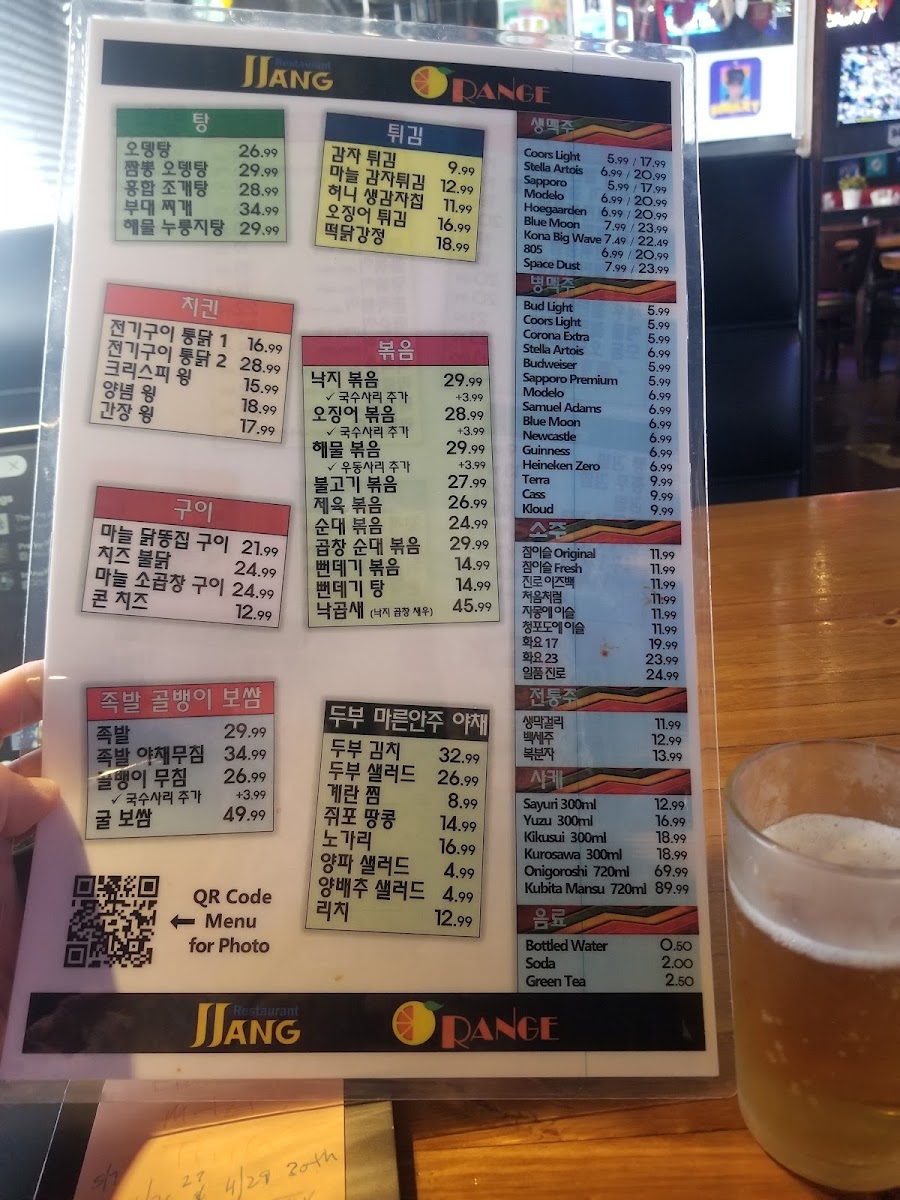 JJANG Restaurant ORANGE
탕
오뎅탕 26.99
짬뽕 오뎅탕 29.99
홍합 조개탕 28.99
부대 찌개 34.99
해물 누룽지탕 29.99
튀김
감자 튀김 9.99
마늘 감자튀김 12.99
허니 생감자칩 11.99
오징어 튀김 16.99
떡닭강정 18.99
치킨
전기구이 통닭 1 16.99
전기구이 통닭 2 28.99
크리스피 윙 15.99
양념 윙 18.99
간장 윙 17.99
볶음
낙지 볶음 29.99
✓ 국수사리 추가 +3.99
오징어 볶음 28.99
✓ 국수사리 추가 +3.99
해물 볶음 29.99
✓ 우동사리 추가 +3.99
불고기 볶음 27.99
제육 볶음 26.99
순대 볶음 24.99
곱창 순대 볶음 29.99
뻔데기 볶음 14.99
뻔데기 탕 14.99
낙곱새 (낙지 곱창 새우) 45.99
구이
마늘 닭똥집 구이 21.99
치즈 불닭 24.99
마늘 소곱창 구이 24.99
콘 치즈 12.99
족발 골뱅이 보쌈
족발 29.99
족발 야채무침 34.99
골뱅이 무침 26.99
✓ 국수사리 추가 +3.99
굴 보쌈 49.99
두부 마른안주 야채
두부 김치 32.99
두부 샐러드 26.99
계란 찜 8.99
쥐포 땅콩 14.99
노가리 16.99
양파 샐러드 4.99
양배추 샐러드 4.99
리치 12.99
생맥주
Coors Light 5.99 / 17.99
Stella Artois 6.99 / 20.99
Sapporo 5.99 / 17.99
Modelo 6.99 / 20.99
Hoegaarden 6.99 / 20.99
Blue Moon 7.99 / 23.99
Kona Big Wave 7.49 / 22.49
805 6.99 / 20.99
Space Dust 7.99 / 23.99
병맥주
Bud Light 5.99
Coors Light 5.99
Corona Extra 5.99
Stella Artois 6.99
Budweiser 5.99
Sapporo Premium 5.99
Modelo 6.99
Samuel Adams 6.99
Blue Moon 6.99
Newcastle 6.99
Guinness 6.99
Heineken Zero 6.99
Terra 9.99
Cass 9.99
Kloud 9.99
소주
참이슬 Original 11.99
참이슬 Fresh 11.99
진로 이즈백 11.99
처음처럼 11.99
자몽에 이슬 11.99
청포도에 이슬 11.99
화요 17 19.99
화요 23 23.99
일품 진로 24.99
전통주
생막걸리 11.99
백세주 12.99
복분자 13.99
사케
Sayuri 300ml 12.99
Yuzu 300ml 16.99
Kikusui 300ml 18.99
Kurosawa 300ml 18.99
Onigoroshi 720ml 69.99
Kubita Mansu 720ml 89.99
음료
Bottled Water 0.50
Soda 2.00
Green Tea 2.50
QR Code
← Menu
for Photo
JJANG Restaurant ORANGE
4/29 30th